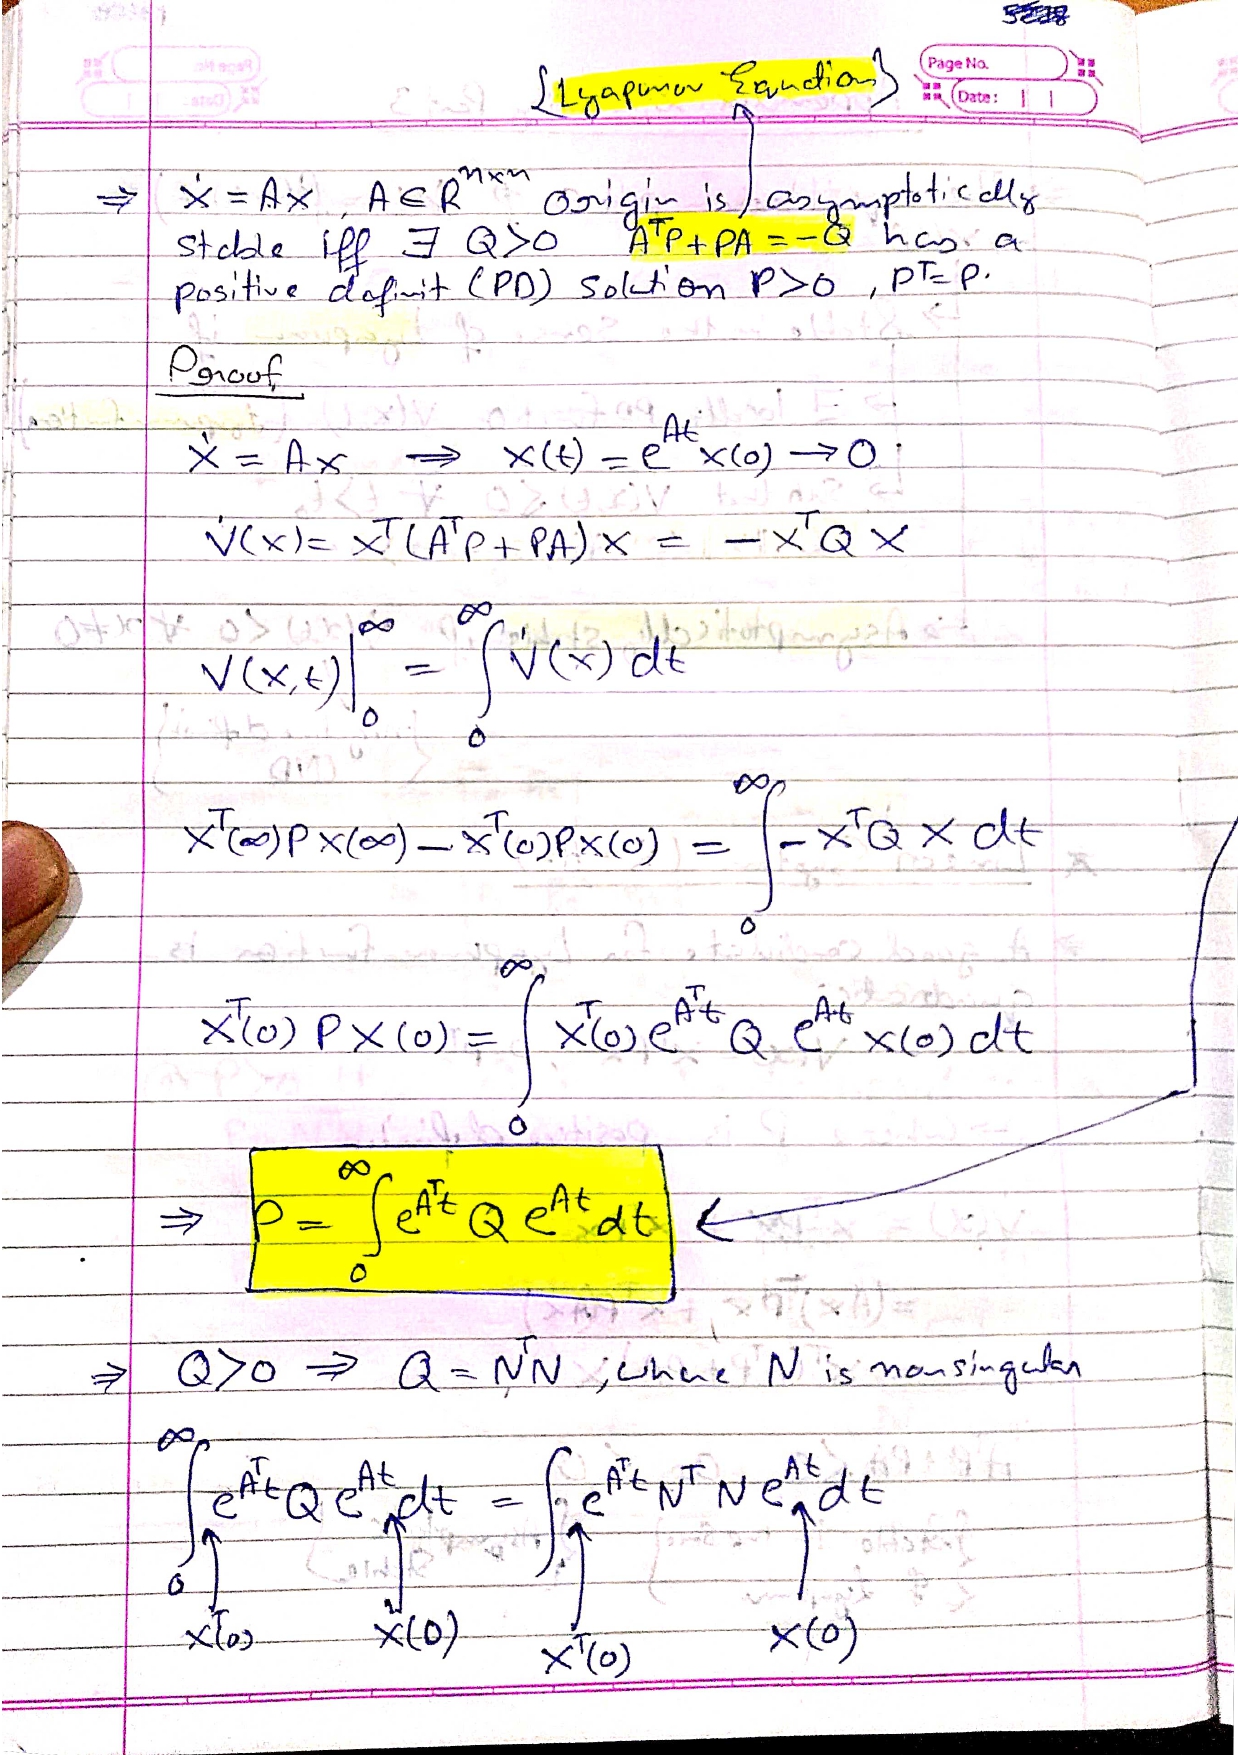 Page No.
Date:
{Lyapunov Equation}
⇒ ẋ = Ax, A ∈ R^{n×n} Origin is asymptotically
stable iff ∃ Q>0 AᵀP + PA = -Q has a
positive definit (PD) solution P>0, Pᵀ=P.
Proof
ẋ = Ax ⇒ x(t) = e^{At} x(0) → 0
V̇(x) = xᵀ(AᵀP + PA)x = -xᵀQx
V(x,t)|_0^∞ = ∫_0^∞ V̇(x) dt
xᵀ(∞)Px(∞) - xᵀ(0)Px(0) = ∫_0^∞ -xᵀQx dt
xᵀ(0)Px(0) = ∫_0^∞ xᵀ(0) e^{Aᵀt} Q e^{At} x(0) dt
⇒ P = ∫_0^∞ e^{Aᵀt} Q e^{At} dt ←
⇒ Q>0 ⇒ Q = NᵀN ; where N is nonsingular
∫_0^∞ e^{Aᵀt} Q e^{At} dt = ∫ e^{Aᵀt} Nᵀ N e^{At} dt
xᵀ(0) x(0) xᵀ(0) x(0)